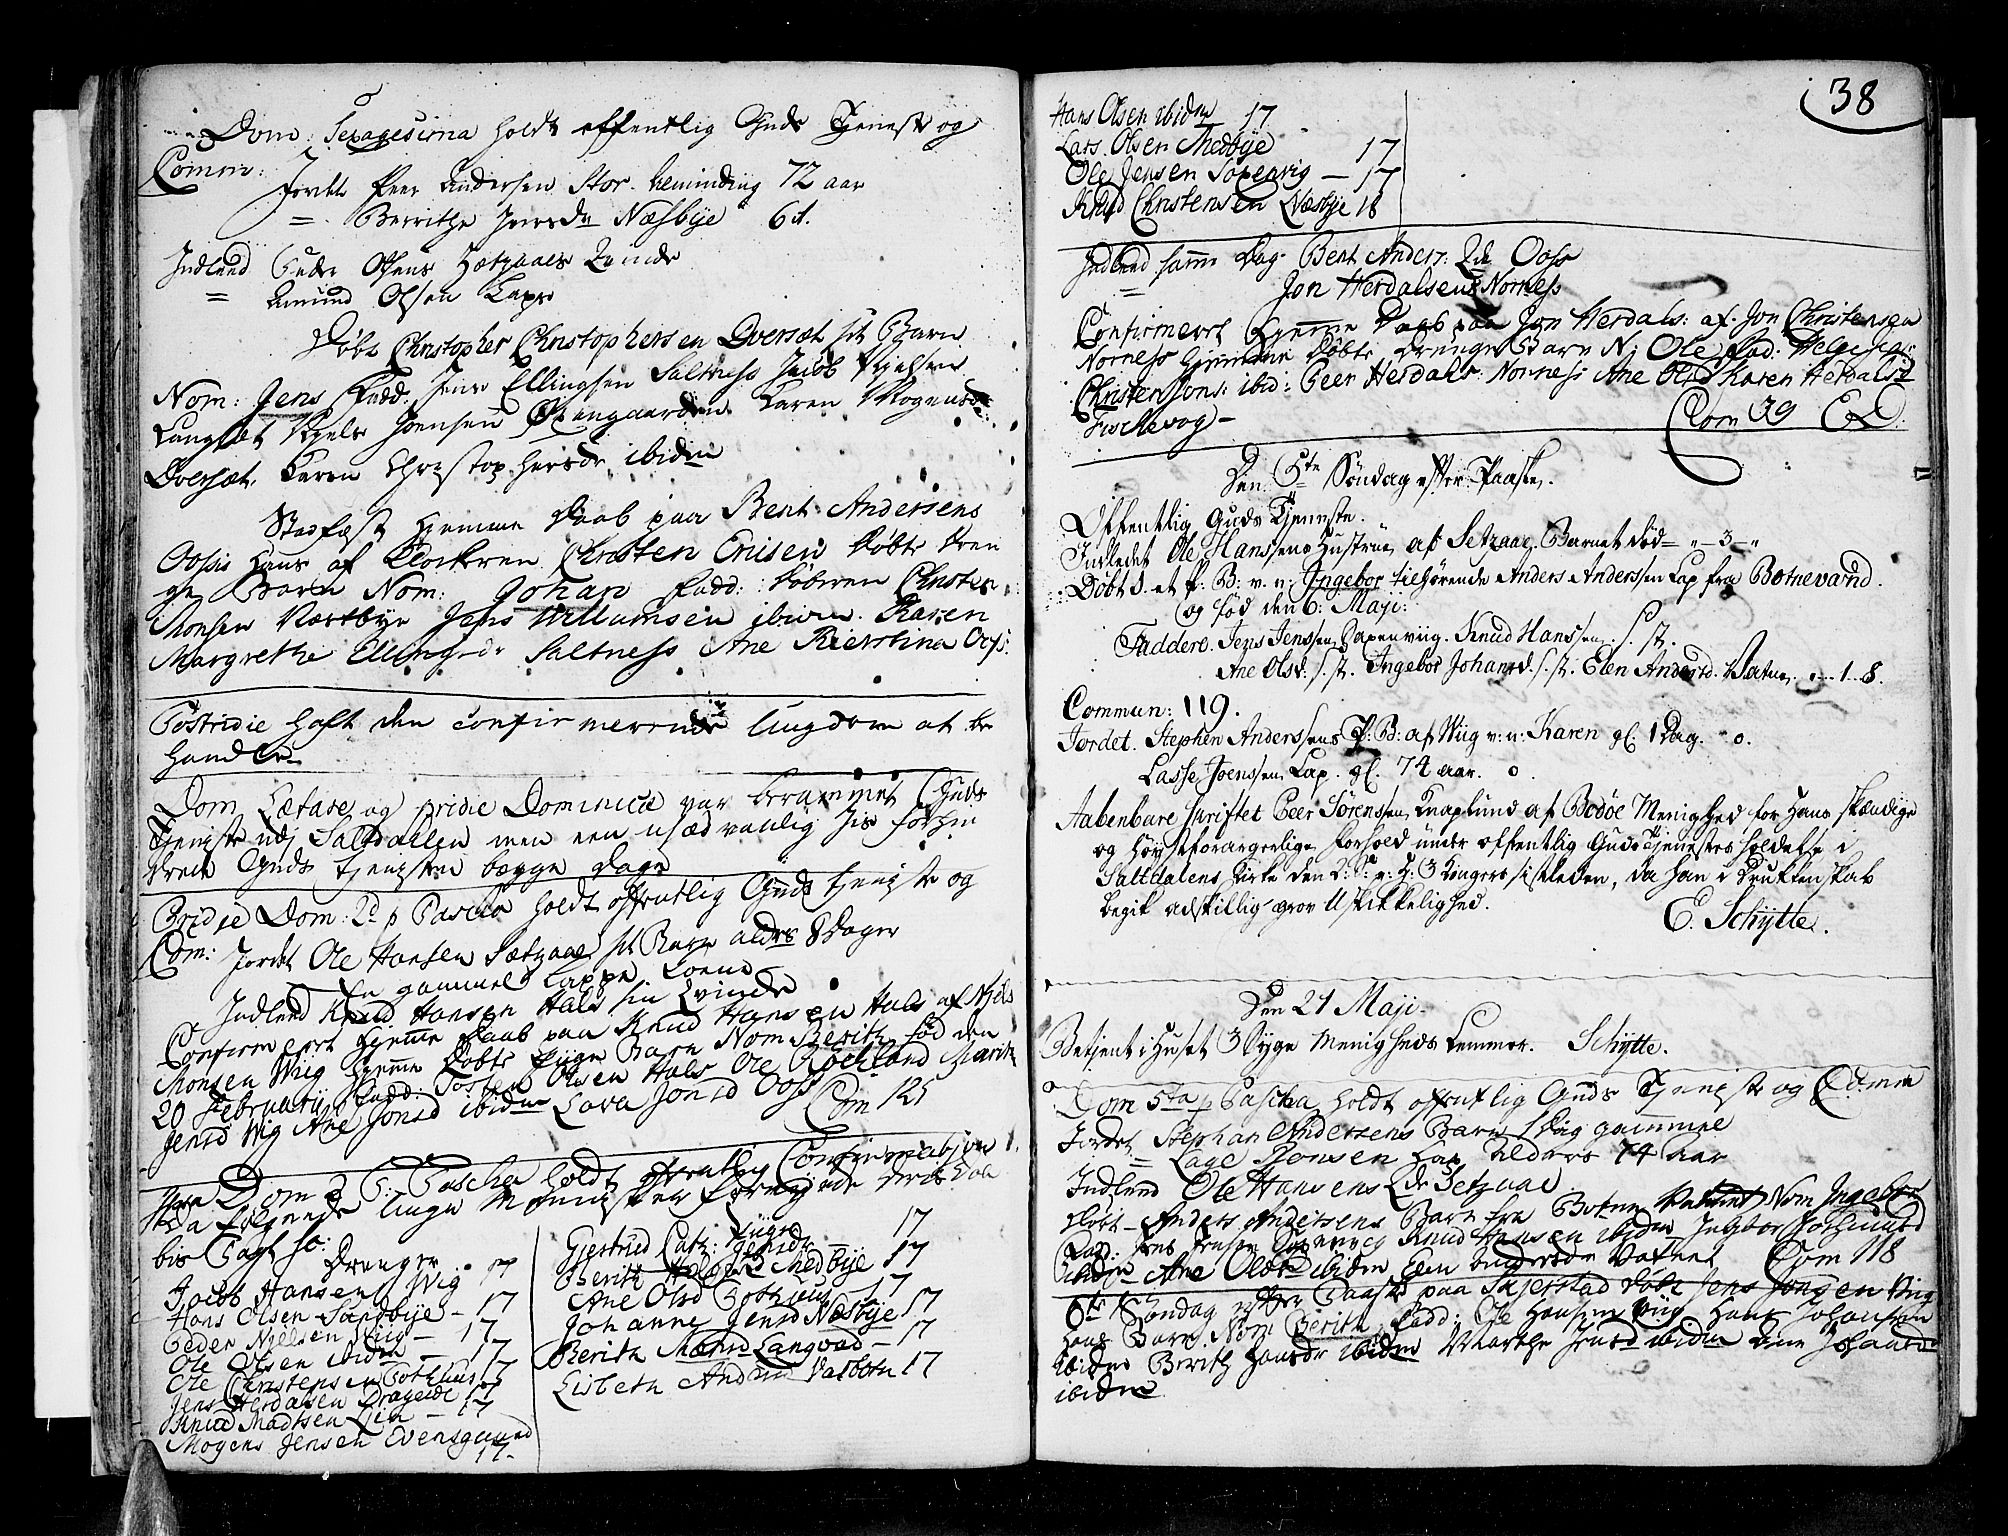 Dom: Sexagesima holdt offentlig Guds Tjeneste og
Comm:
Jordet Peer Andersen Stor 72 aar
= Berrithe Næsbye 6
Indleed Peder Ofsens Quinde
= Amund Olsen Lape
Døbt Christopher Christophersen Oversæt sit Barn
Nom: Jens Fadd: Jens Ellingsen Saltness Jacob
Langset Niels Joensen Karen Mogensd
Oversæt. Karen Christophersdr ibidm
Stadfæst Hjemme Daab paa Bent Andersens
Oosis Hans af Klockeren Christen Enisen døbte Dren
ge Barn Nom: Johan Fadd: Døberen Christen
Monsen Næstbye Jens Willumsen ibidm Karen
Margrethe Ellingsdr Saltness Ane Kierstina Oos:
Postridie haft den confirmerende Ungdom at be
handle
Dom Lætare og pridie Dominica var berammet Guds
Tjeniste udj Saltdallen men een usædvanlig
drede Guds Tjenisten begge dage
Pridie Dom: 2d p Pascha holdt offentlig Guds tjeniste og
Com: Jordet Ole Hansen Sætzaae sit Barn alders 8 Dager
En gammel Lappe Kone
Indleed Knud Hansen Hals sin Qvinde
Confirmeert Hjemme Daab paa Knud Hansen Hals af Njels
Monsen Wiig Hjemme Døbte Pige Barn Nom Berith fød den
20 Februarij Fadd: Tosten Olsen Hals Ole Rockland Marith
Jensd Wig Ane Jonsd ibidm Lova Jonsd Oos Com 125
Dom 3 P: Pascha holdt offentlig Confirmatjon
da følgende unge Mennisker fornyede deris Daa
bis Pagt so:
Drenger
Jacob Hansen Wig 17
Hans Olsen Sandbye - 17
Peder Njelsen Wiig - 17
Ole Olsen ibidm - 17
Ole Christensen Potkiuus 17
Jens Herdalsen Drageide 17
Knud Madtsen Lien - 17
Mogens Jensen Evensgaard
17.
Piiger
Gjertrud Cat: Jensdr - 17
Berith Medbye 17
Ane Olsd Potkiuus 17
Johanne Jensd Næsbye 17
Berith Monsd Langvad - 17
Lisbeth Andersd Vatbotn 17
38
Hans Olsen ibidm 17
Lars Olsen Medbye 17
Ole Jensen Soxenvig - 17
Knud Christensen Næsbye 18
Indleed samme Dag Bent Anders: Qde Oos
= Jon Herdalsens Norness
Confirmeert Hjemme Daab paa Jon Herdals: af Jon Christensen
Norness Hjemme Døbte Drenge Barn N: Ole Fad: Helge
Christensøns: ibid: Peer Herdals: Norness Ane Olsd Karen Herdalsd
Fiskevog - Com 39
Den 5te Søndag efter Paaske.
Offentlig Guds Tjeneste.
Indledet Ole Hanssens Hustrue af Setzaae, Barnet død = „-3-„
Døbt S. et P. B: v. n: Ingebor tilhørende Anders Anderssen Lap fra Botnevand.
og fød den 6: Maji:
Faddere. Jens Jenssen Saxenviig. Knud Hanssen. S. st.
Ane Olsd: S: st. Ingebor Johansd. S. st. Elen Andersd. Vatne. „-1-8.
Commun: 119.
Jordet. Stephen Anderssens P: B: af Wiig v: n: Karen gl. 1 Dag. o.
Lasse Joenssen Lap. gl. 74 aar. o.
Aabenbare skriftet Peer Sørenssen Knaplund af Bodøe Menighed for Hans skændige
og Høystforargerlige Forhold under offentlig Guds Tjenestes Holdelse i
Saltdalens Kirke den 2: S: p: H: 3 Kongers sistleden, da han i Drukkenskab
begik adskillig grov Uskikkelighed. E. Schytte.
Den 21 Maji.
Betjent i Huset 3 Syge Menigheds Lemmer. Schytte.
Dom 5ta p Pascha holdt offentlig Guds Tjeniste og Comm
Jordet Stephan Andersens Barn 1 Dag gammel
= Lage Jonsen Lap alders 74 aar
Indleed Ole Hansens Qde Setzaae
Døbt - Anders Andersens Barn fra Botne Nom Ingebor
Fadd: Jens Jensen Soxenvig Knud Hansen ibidm Ingbor Johansd
ibidm Ane Olsd ibidm Elen Andersdr Vatne Com 118
6te Søndag efter Paaske paa Skjerstad døbt Jens Jonsen Wig
hans Barn Nom Berith Fadd: Ole Hansen Wiig Hans Johansen
ibidm Berith Hansdr ibidm Marthe Jensd ibidm Ane Johansd
ibidm